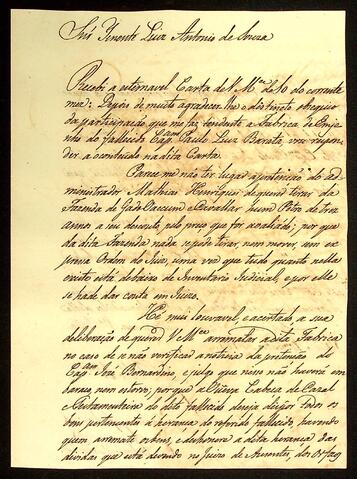 Snr Tenente Luiz Antonio de Souza
Recebi a estemavel Carta de VMce de 10 do corrente
mez: Depois de muito agradecer-lhe o distincto obzequio
da participação que me faz tendente a Fabrica do Enge
nho do fallecido Capam Paulo Luiz Barata, vou respon
der a contheudo na dita Carta.
Parece me não ter lugar a pertenção do Ad
ministrador Mathias Henriques de querer tirar da
Fazenda de Gado Vaccum e Cavallar hum Potro de trez
annos a seu desconto, pelo preço que for avaliado; por que
da dita Fazenda nada se pode tirar, nem mover, sem ex
pressa Ordem do Juizo, uma vez que tudo quanto nella
existe está debaixo de Inventario Judicial, e por elle
se hade dar conta em Juizo.
Hé mui louvavel e acertado a sua
deliberação de querer VMce arrematar a dita Fabrica
no caso de se não verificar a noticia da pretenção do
Capam José Bernardino, e julgo que nisso não haverá em
baraço, nem estorvo; porque a Viuva Cabeça de Cazal
e Testamenteira do dito fallecido dezeja dispor todos os
bens pertencentes á herança do referido fallecido, havendo
quem arremate os bens, e desonere a dita herança das
dividas que está devendo no Juizo de Auzentes, dos Orfãos